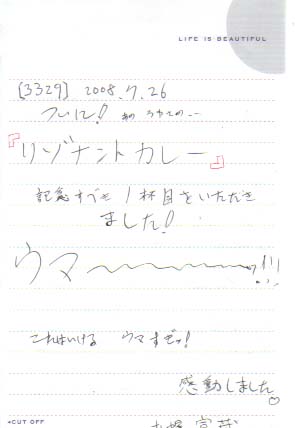 LIFE IS BEAUTIFUL
[3329] 2008.7.26
ついに! あの うわさの…
『リゾナントカレー』
記念すべき 1杯目をいただき
ました!
ウマ〜〜〜〜ッ!!!
これはいける ウマすぎッ!
感動しました♡
◂CUT OFF